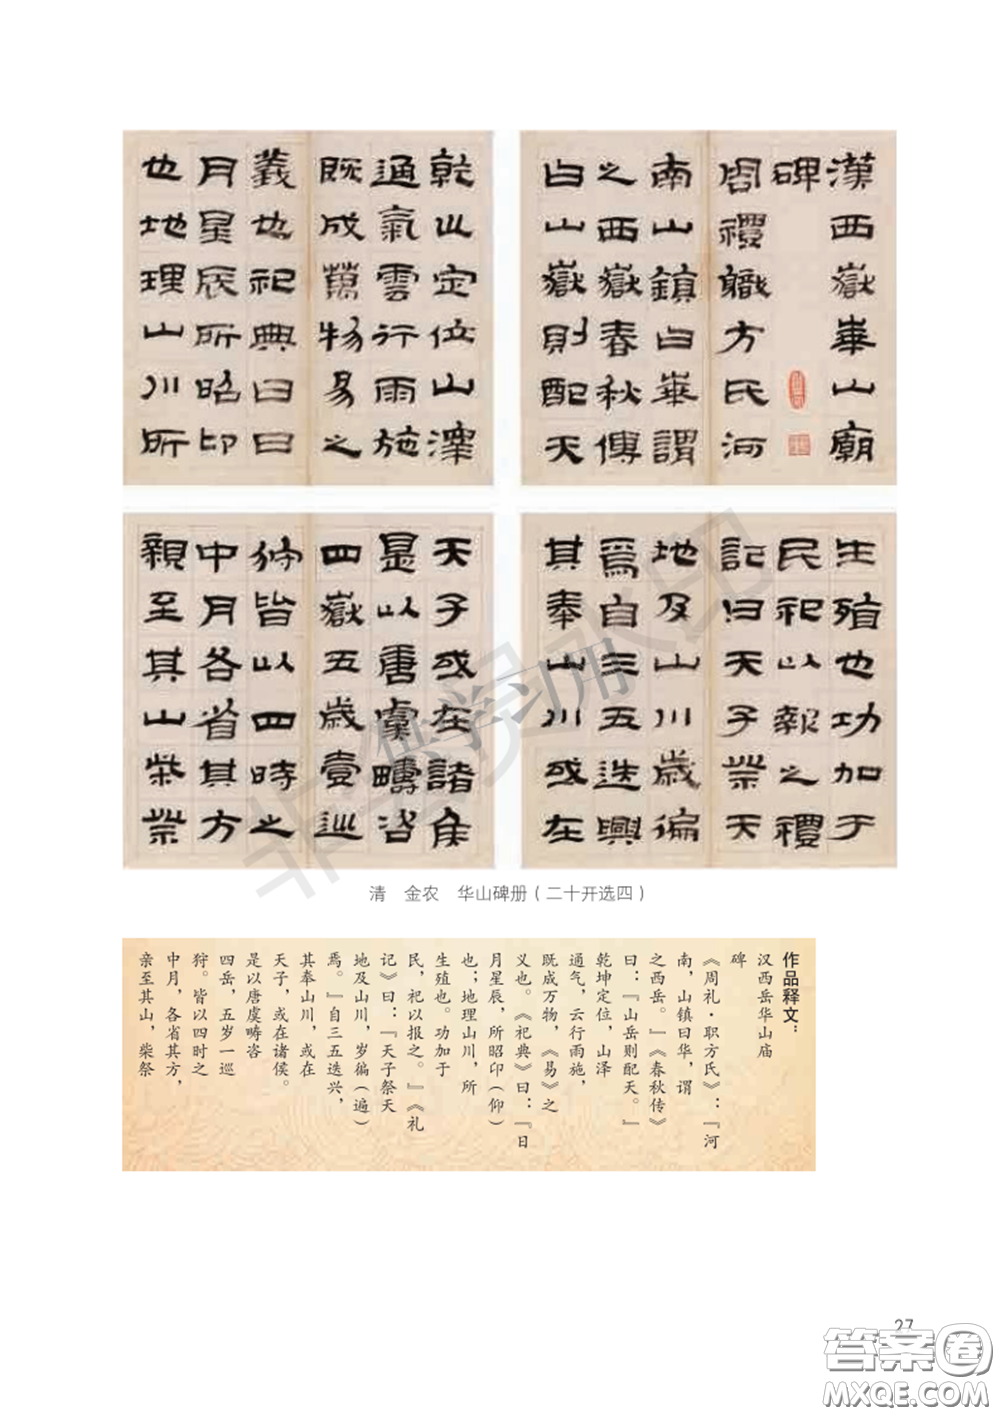 漢西嶽華山廟
碑
周禮職方氏河
南山鎮曰華謂
之西嶽春秋傳
曰山嶽則配天
乾㘸定位山澤
通氣雲行雨施
既成萬物易之
義也祀典曰日
月星辰所昭卬
也地理山川所
生殖也功加于
民祀以報之禮
記曰天子祭天
地及山川歲徧
焉自三五迭興
其奉山川或在
天子或在諸侯
是以唐虞疇咨
四嶽五歲壹巡
狩皆以四時之
中月各省其方
親至其山柴祭
清 金农 华山碑册（二十开选四）
作品释文：
汉西岳华山庙
碑
《周礼·职方氏》：『河
南，山镇曰华，谓
之西岳。』《春秋传》
曰：『山岳则配天。』
乾坤定位，山泽
通气，云行雨施，
既成万物，《易》之
义也。《祀典》曰：『日
月星辰，所昭卬（仰）
也；地理山川，所
生殖也。功加于
民，祀以报之。』《礼
记》曰：『天子祭天
地及山川，岁徧（遍）
焉。』自三五迭兴，
其奉山川，或在
天子，或在诸侯。
是以唐虞畴咨
四岳，五岁一巡
狩。皆以四时之
中月，各省其方，
亲至其山，柴祭
27
答案圈
MXQE.COM